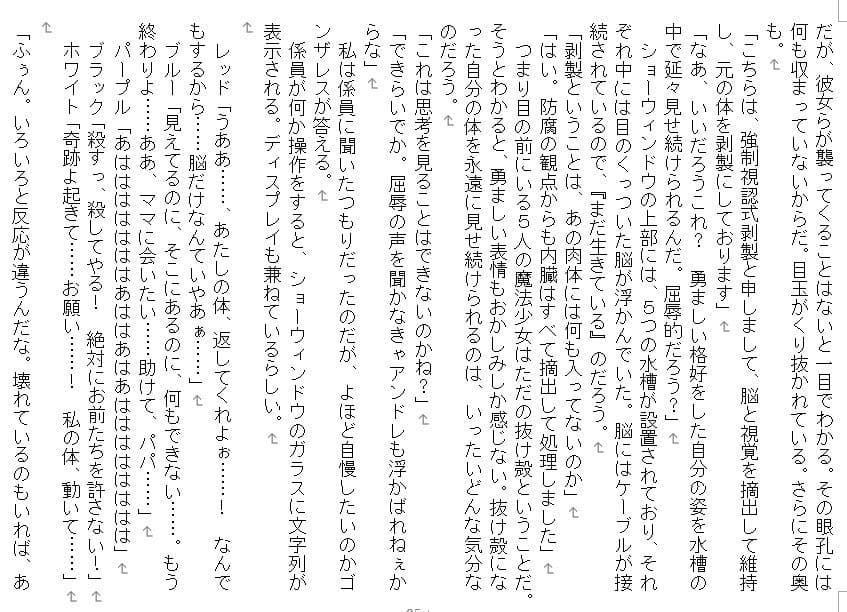 だが、彼女らが襲ってくることはないと一目でわかる。その眼孔には
何も収まっていないからだ。目玉がくり抜かれている。さらにその奥
も。
「こちらは、強制視認式剥製と申しまして、脳と視覚を摘出して維持
し、元の体を剥製にしております」
「なあ、いいだろうこれ？　勇ましい格好をした自分の姿を水槽の
中で延々見せ続けられるんだ。屈辱的だろう？」
　ショーウィンドウの上部には、５つの水槽が設置されており、それ
ぞれ中には目のくっついた脳が浮かんでいた。脳にはケーブルが接
続されているので、『まだ生きている』のだろう。
「剥製ということは、あの肉体には何も入ってないのか」
「はい。防腐の観点からも内臓はすべて摘出して処理しました」
　つまり目の前にいる５人の魔法少女はただの抜け殻ということだ。
そうとわかると、勇ましい表情もおかしみしか感じない。抜け殻にな
った自分の体を永遠に見せ続けられるのは、いったいどんな気分な
のだろう。
「これは思考を見ることはできないのかね？」
「できらいでか。屈辱の声を聞かなきゃアンドレも浮かばれねぇか
らな」
　私は係員に聞いたつもりだったのだが、よほど自慢したいのかゴ
ンザレスが答える。
　係員が何か操作をすると、ショーウィンドウのガラスに文字列が
表示される。ディスプレイも兼ねているらしい。
　レッド「うああ……、あたしの体、返してくれよぉ……！　なんで
もするから……脳だけなんていやあぁ……」
　ブルー「見えてるのに、そこにあるのに、何もできない……。もう
終わりよ……ああ、ママに会いたい……助けて、パパ……」
　パープル「あはははははははあははあはあはははははははは」
　ブラック「殺すっ、殺してやる！　絶対にお前たちを許さない！」
　ホワイト「奇跡よ起きて……お願い……！　私の体、動いて……」
「ふぅん。いろいろと反応が違うんだな。壊れているのもいれば、あ